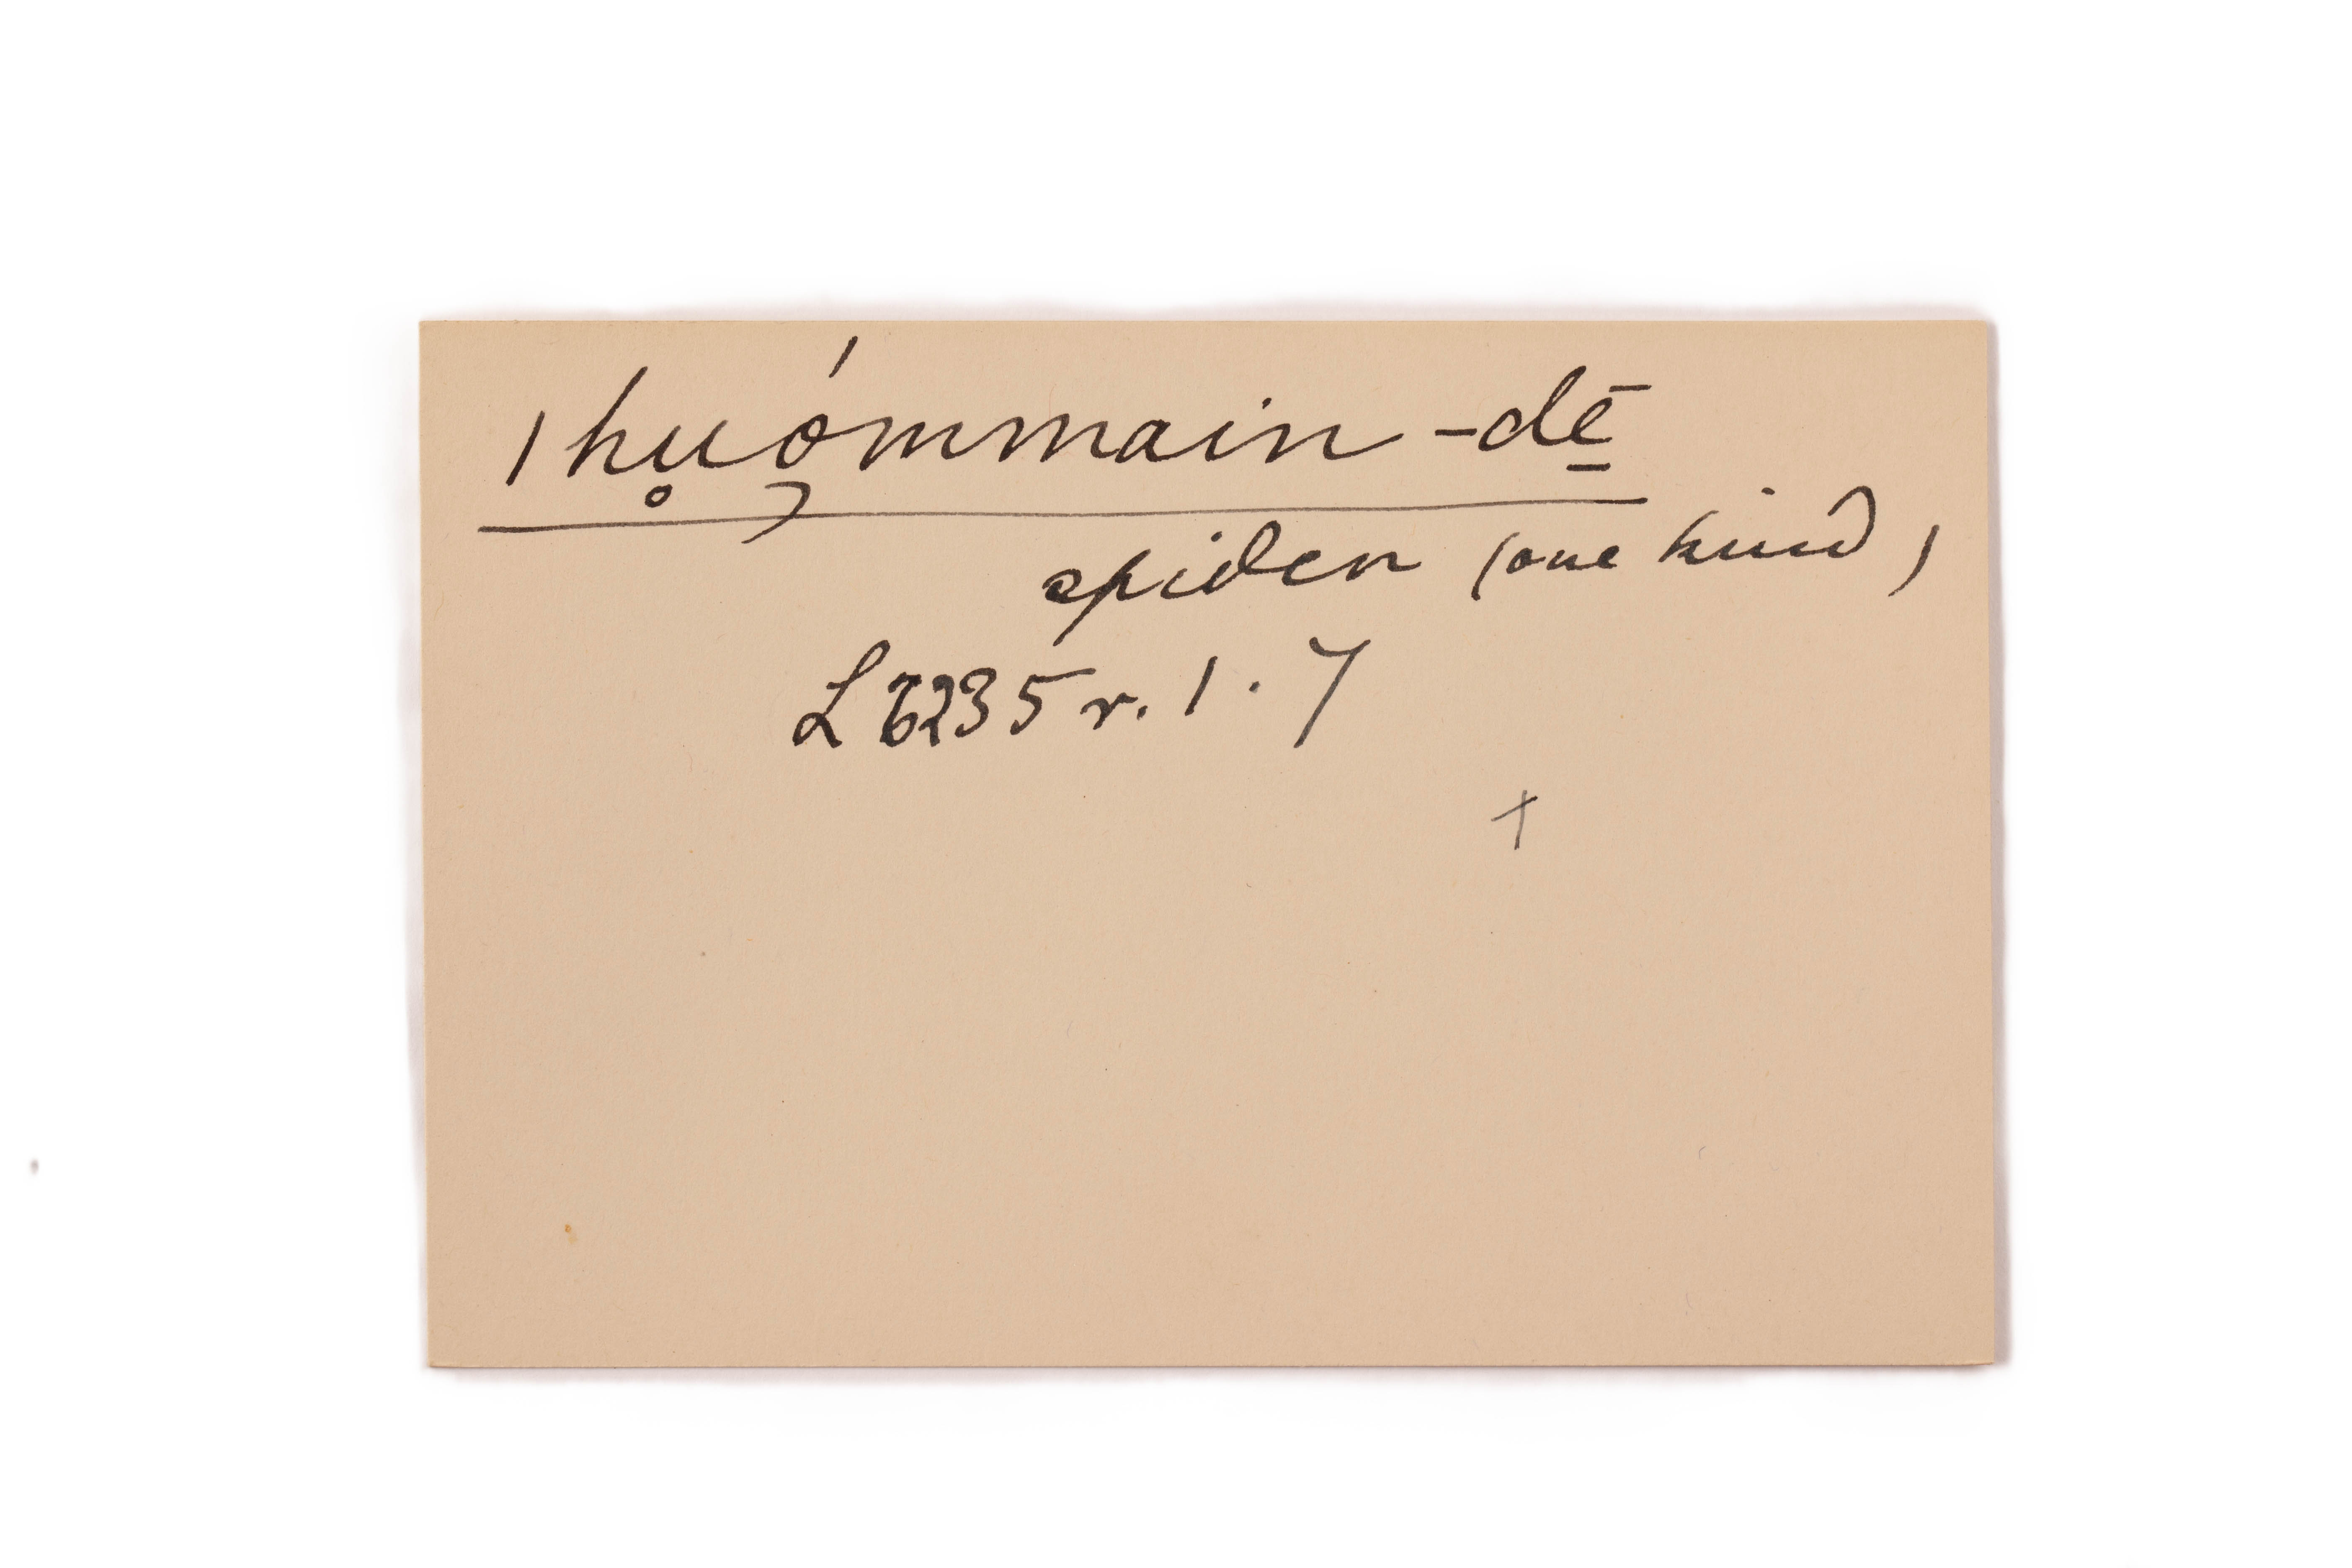 |hu̥ó̜mmain-dē̠
spider (one kind)
L VI 235 r. 1.7
+